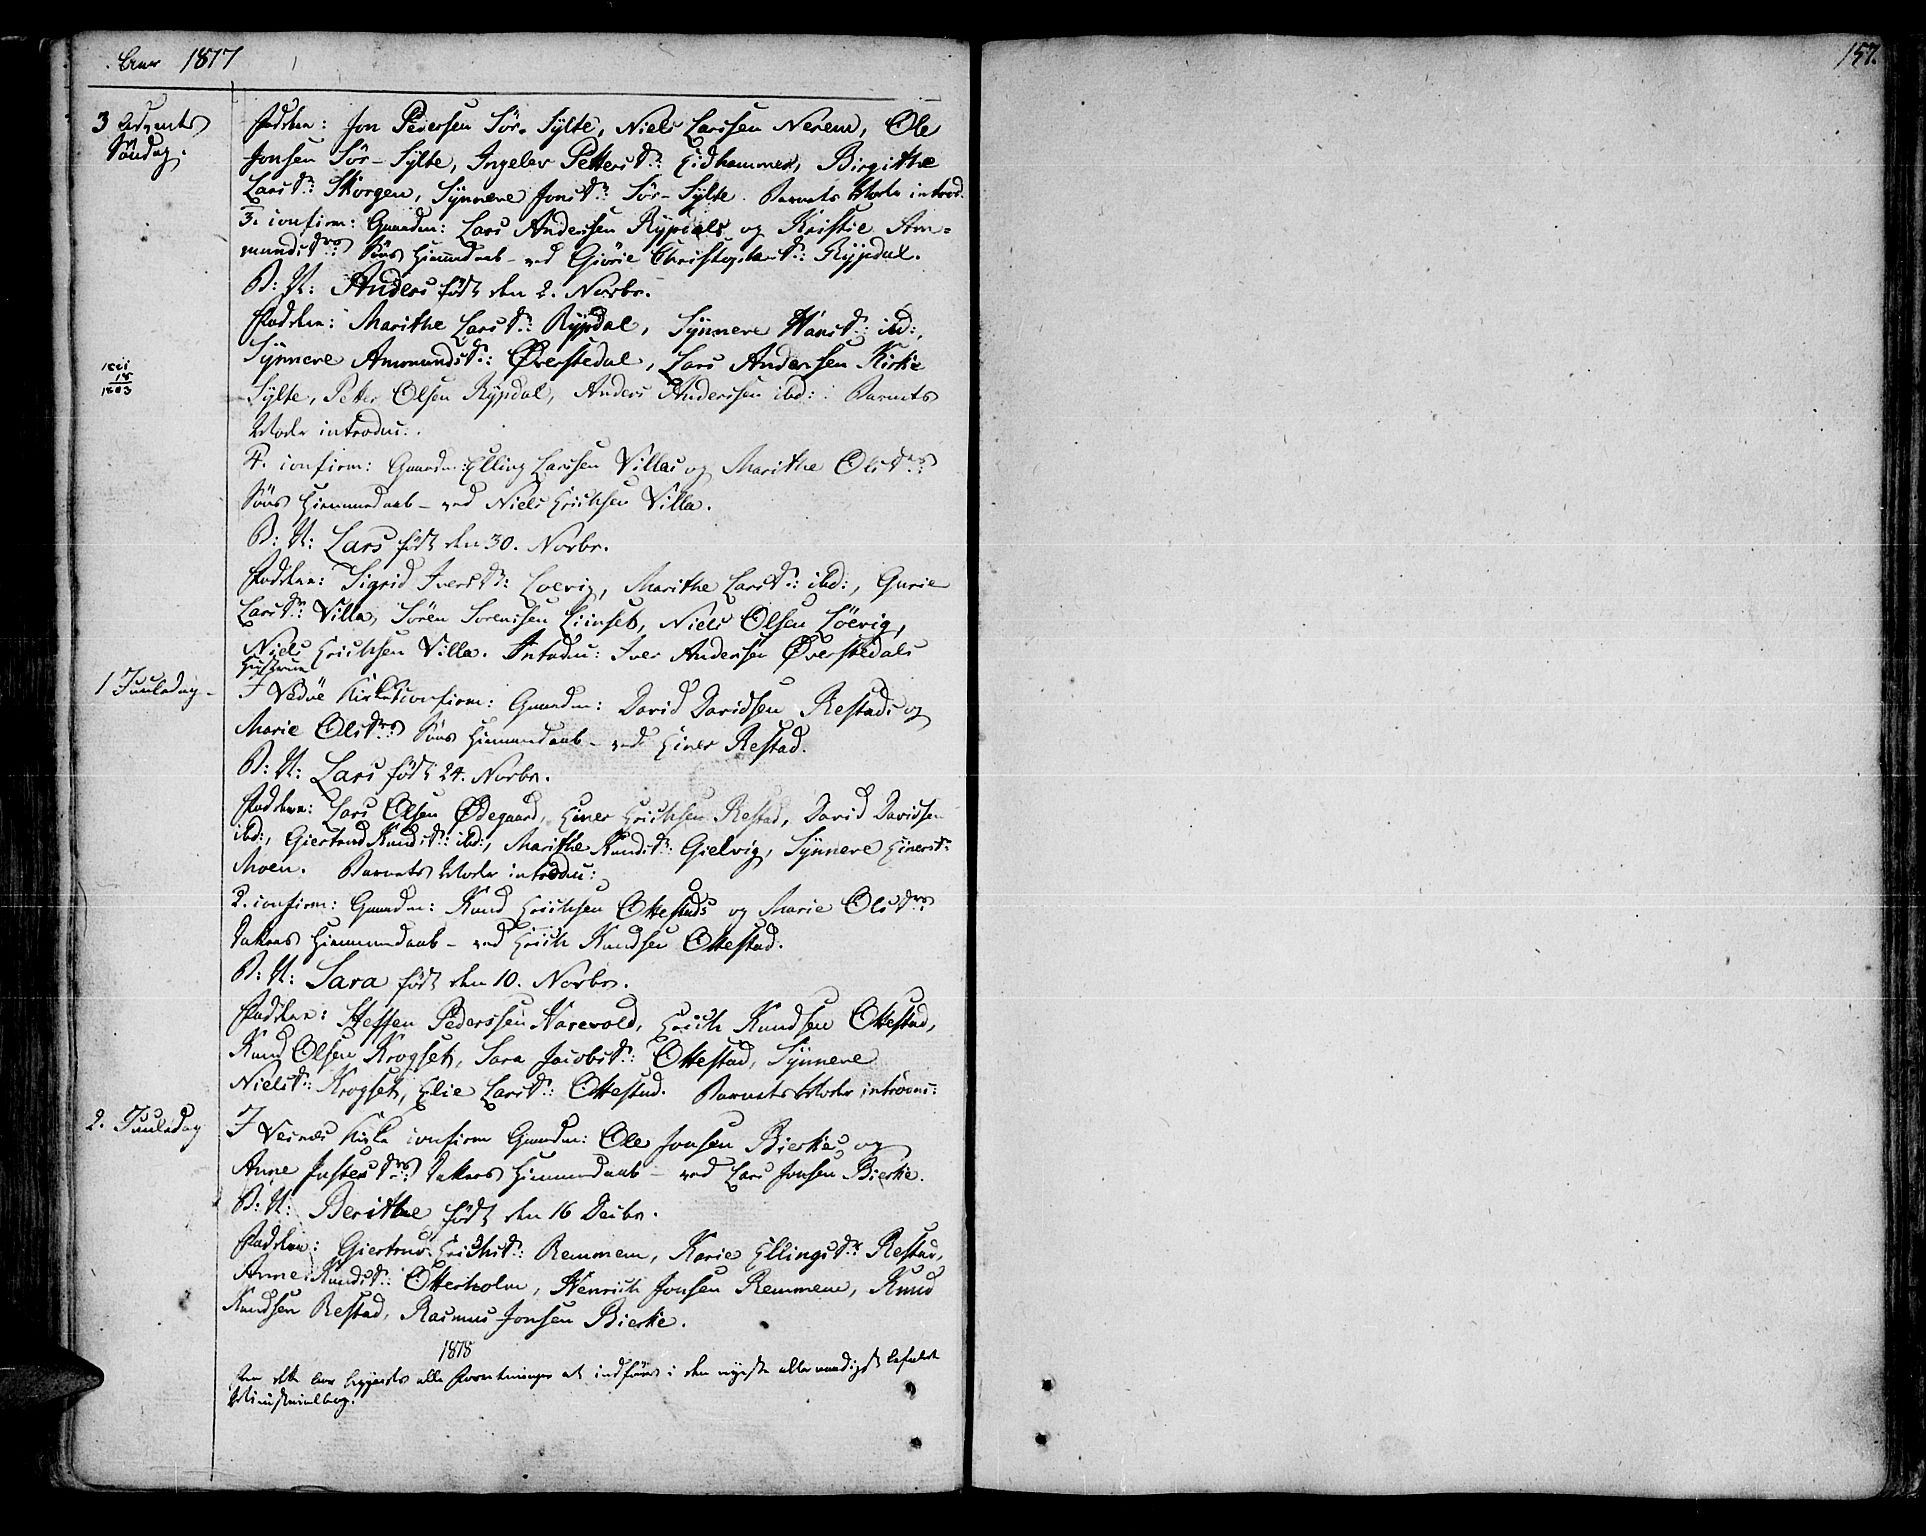 Aar 1817
157.
3 Advents
Søndag.
Faddere: Jon Pedersen Sør-Sylte, Niels Larssen Nerem, Ole
Jonsen Sør-Sylte, Ingelev Petters Dr: Eidhammer, Birgithe
Lars Dr: Skorgen, Synneve Jons Dr: Sør-Sylte. Barnets Moder introd.
3. confirm: Gaardm: Lars Andersen Rypdals og Kristie Am-
munds Drs Søns Hiemmedaab - ved Giørie Christophers Dr: Rypdal.
B: N: Anders født den 2. Novbr.
Faddere: Marithe Lars Dr: Rypdal, Synneve Hans Dr: ibd:,
Synneve Amunds Dr: Øverstedal, Lars Andersen Kirke
1803
Sylte, Petter Olsen Rypdal, Anders Anderssen ibd: Barnets
Moder introdu:.
4. confirm: Gaardm: Elling Larssen Villas og Marithe Ols Drs
Søns Hiemmedaab - ved Niels Erichsen Villa.
B: N: Lars født den 30. Novbr.
Faddere: Sigrid Ivers Dr: Loevig, Marithe Lars Dr: ibd:, Gurie
Lars Dr: Villa, Søren Sørenssen Liinset, Niels Olsen Løevig,
Niels Erichsen Villa. Intodu: Iver Andersen Øverstedals
Hustrue
1 Juuledag -
I Vedøe Kirke confirm: Gaardm: David Davidsen Restads og
Marie Ols Drs Søns Hiemmedaab - ved Einer Restad.
B: N: Lars født 24. Novbr.
Faddere: Lars Olsen Ødegaard, Einer Erichsen Restad, David Davidsen
ibd:, Giertrud Knuds Dr: ibd:, Marithe Knuds Dr: Gielvig, Synneve Einers Dr:
Moen. Barnets Moder introdu:
2. confirm: Gaardm: Knud Erichsen Ottestads og Marie Ols Drs
Datters Hiemmedaab - ved Erich Knudsen Ottestad.
B: N: Sara født den 10. Novbr.
Faddere: Steffen Pederssen Harevold, Erich Knudsen Ottestad,
Knud Olsen Krogset, Sara Jacobs Dr: Ottestad, Synneve
Niels Dr: Krogset, Elie Lars Dr: Ottestad. Barnets Moder introdu:
2. Juuledag
I Vesnæs Kirke confirm Gaardm: Ole Jonsen Bierkes og
Anne Justes Drs Datters Hiemmedaab - ved Lars Jonsen Bierke.
B: N: Berithe født den 16 Decbr.
Faddere: Giertrud Erichs Dr: Remmem, Karie Ellings Dr Restad,
Anne Knuds Dr: Otterholm, Henrich Jonsen Remmem, Knud
Knudsen Restad, Rasmus Jonsen Bierke.
1818
dette Aar begyndes alle Forretninger at indføres i den nyeste allernaadigst befalede
Ministerialbog.